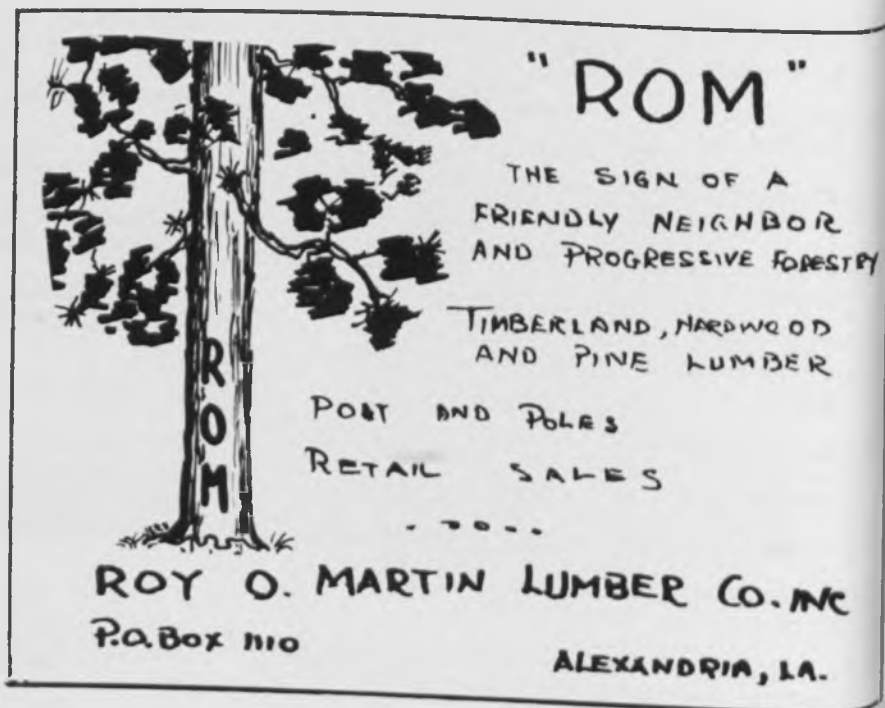 "ROM"
THE SIGN OF A
FRIENDLY NEIGHBOR
AND PROGRESSIVE FORESTRY
TIMBERLAND, HARDWOOD
AND PINE LUMBER
POST AND POLES
RETAIL SALES
ROM
ROY O. MARTIN LUMBER CO. INC
P.O. BOX 1110
ALEXANDRIA, LA.